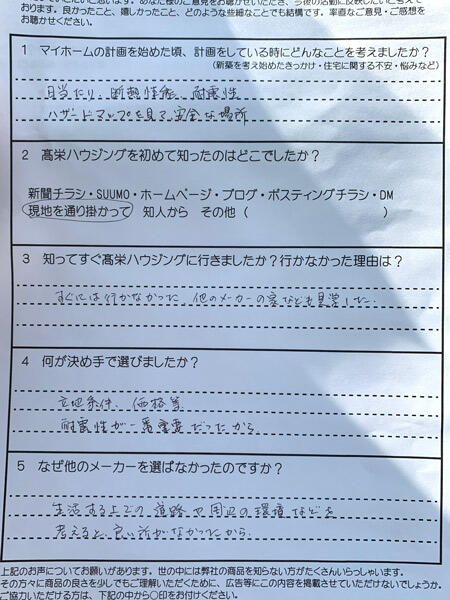 良かったこと、嬉しかったこと、どのような些細なことでも結構です。率直なご意見・ご感想を
お聴かせください。
1 マイホームの計画を始めた頃、計画をしている時にどんなことを考えましたか？
（新築を考え始めたきっかけ・住宅に関する不安・悩みなど）
日当たり、断熱性能、耐震性
ハザードマップを見て安全な場所
2 髙栄ハウジングを初めて知ったのはどこでしたか？
新聞チラシ・SUUMO・ホームページ・ブログ・ポスティングチラシ・DM
現地を通り掛かって 知人から その他（ ）
3 知ってすぐ髙栄ハウジングに行きましたか？行かなかった理由は？
すぐには行かなかった。他のメーカーの家なども見学した。
4 何が決め手で選びましたか？
立地条件、価格等
耐震性が一番重要だったから
5 なぜ他のメーカーを選ばなかったのですか？
生活する上での道路や周辺の環境などを
考えると、良い所がなかったから。
上記のお声についてお願いがあります。世の中には弊社の商品を知らない方がたくさんいらっしゃいます。
その方々に商品の良さを少しでもご理解いただくために、広告等にこの内容を掲載させていただけないでしょうか。
ご協力いただける方は、下記の中から○印をお付けください。